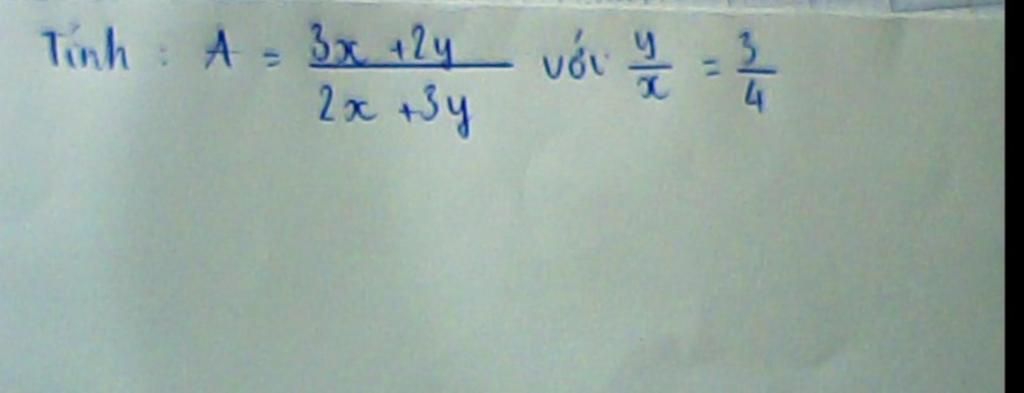 Tính : A = \frac{3x + 2y}{2x + 3y} với \frac{y}{x} = \frac{3}{4}